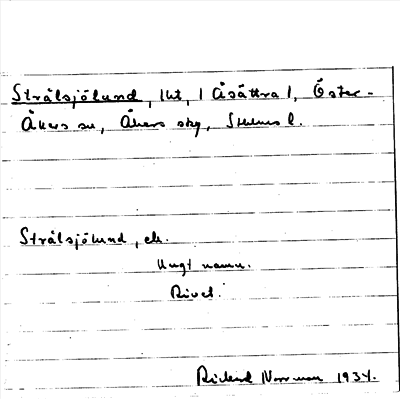 Strålsjölund, lht, 1 Åsättra 1, Öster-
Åkers sn, Åkers skg, Sthlms l.
Strålsjölund, eh.
Ungt namn.
Rivet.
Rickard Norrman 1934.